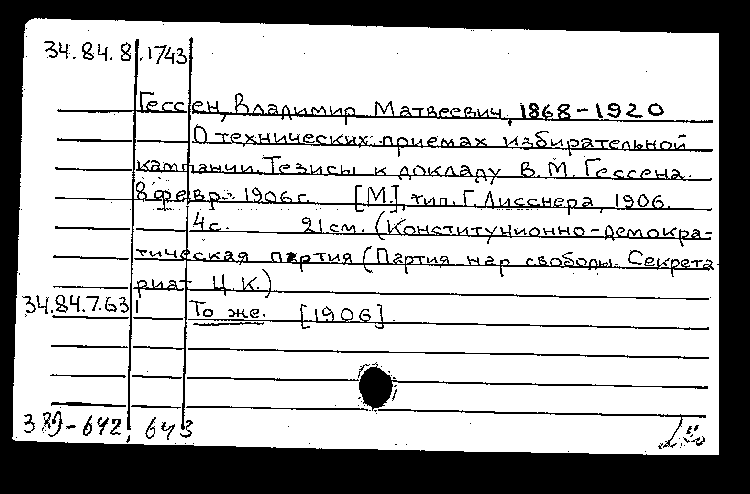 34.84.8.1743
Гессен, Владимир Матвеевич, 1868-1920
О технических приемах избирательной
кампании. Тезисы к докладу В. М. Гессена.
8 февр. 1906 г. [М.], тип. Г. Лисснера, 1906.
4 с. 21 см. (Конституционно-демокра-
тическая партия (Партия нар свободы. Секрета
риат Ц. К.)
34.84.7.63 То же. [1906].
642, 643